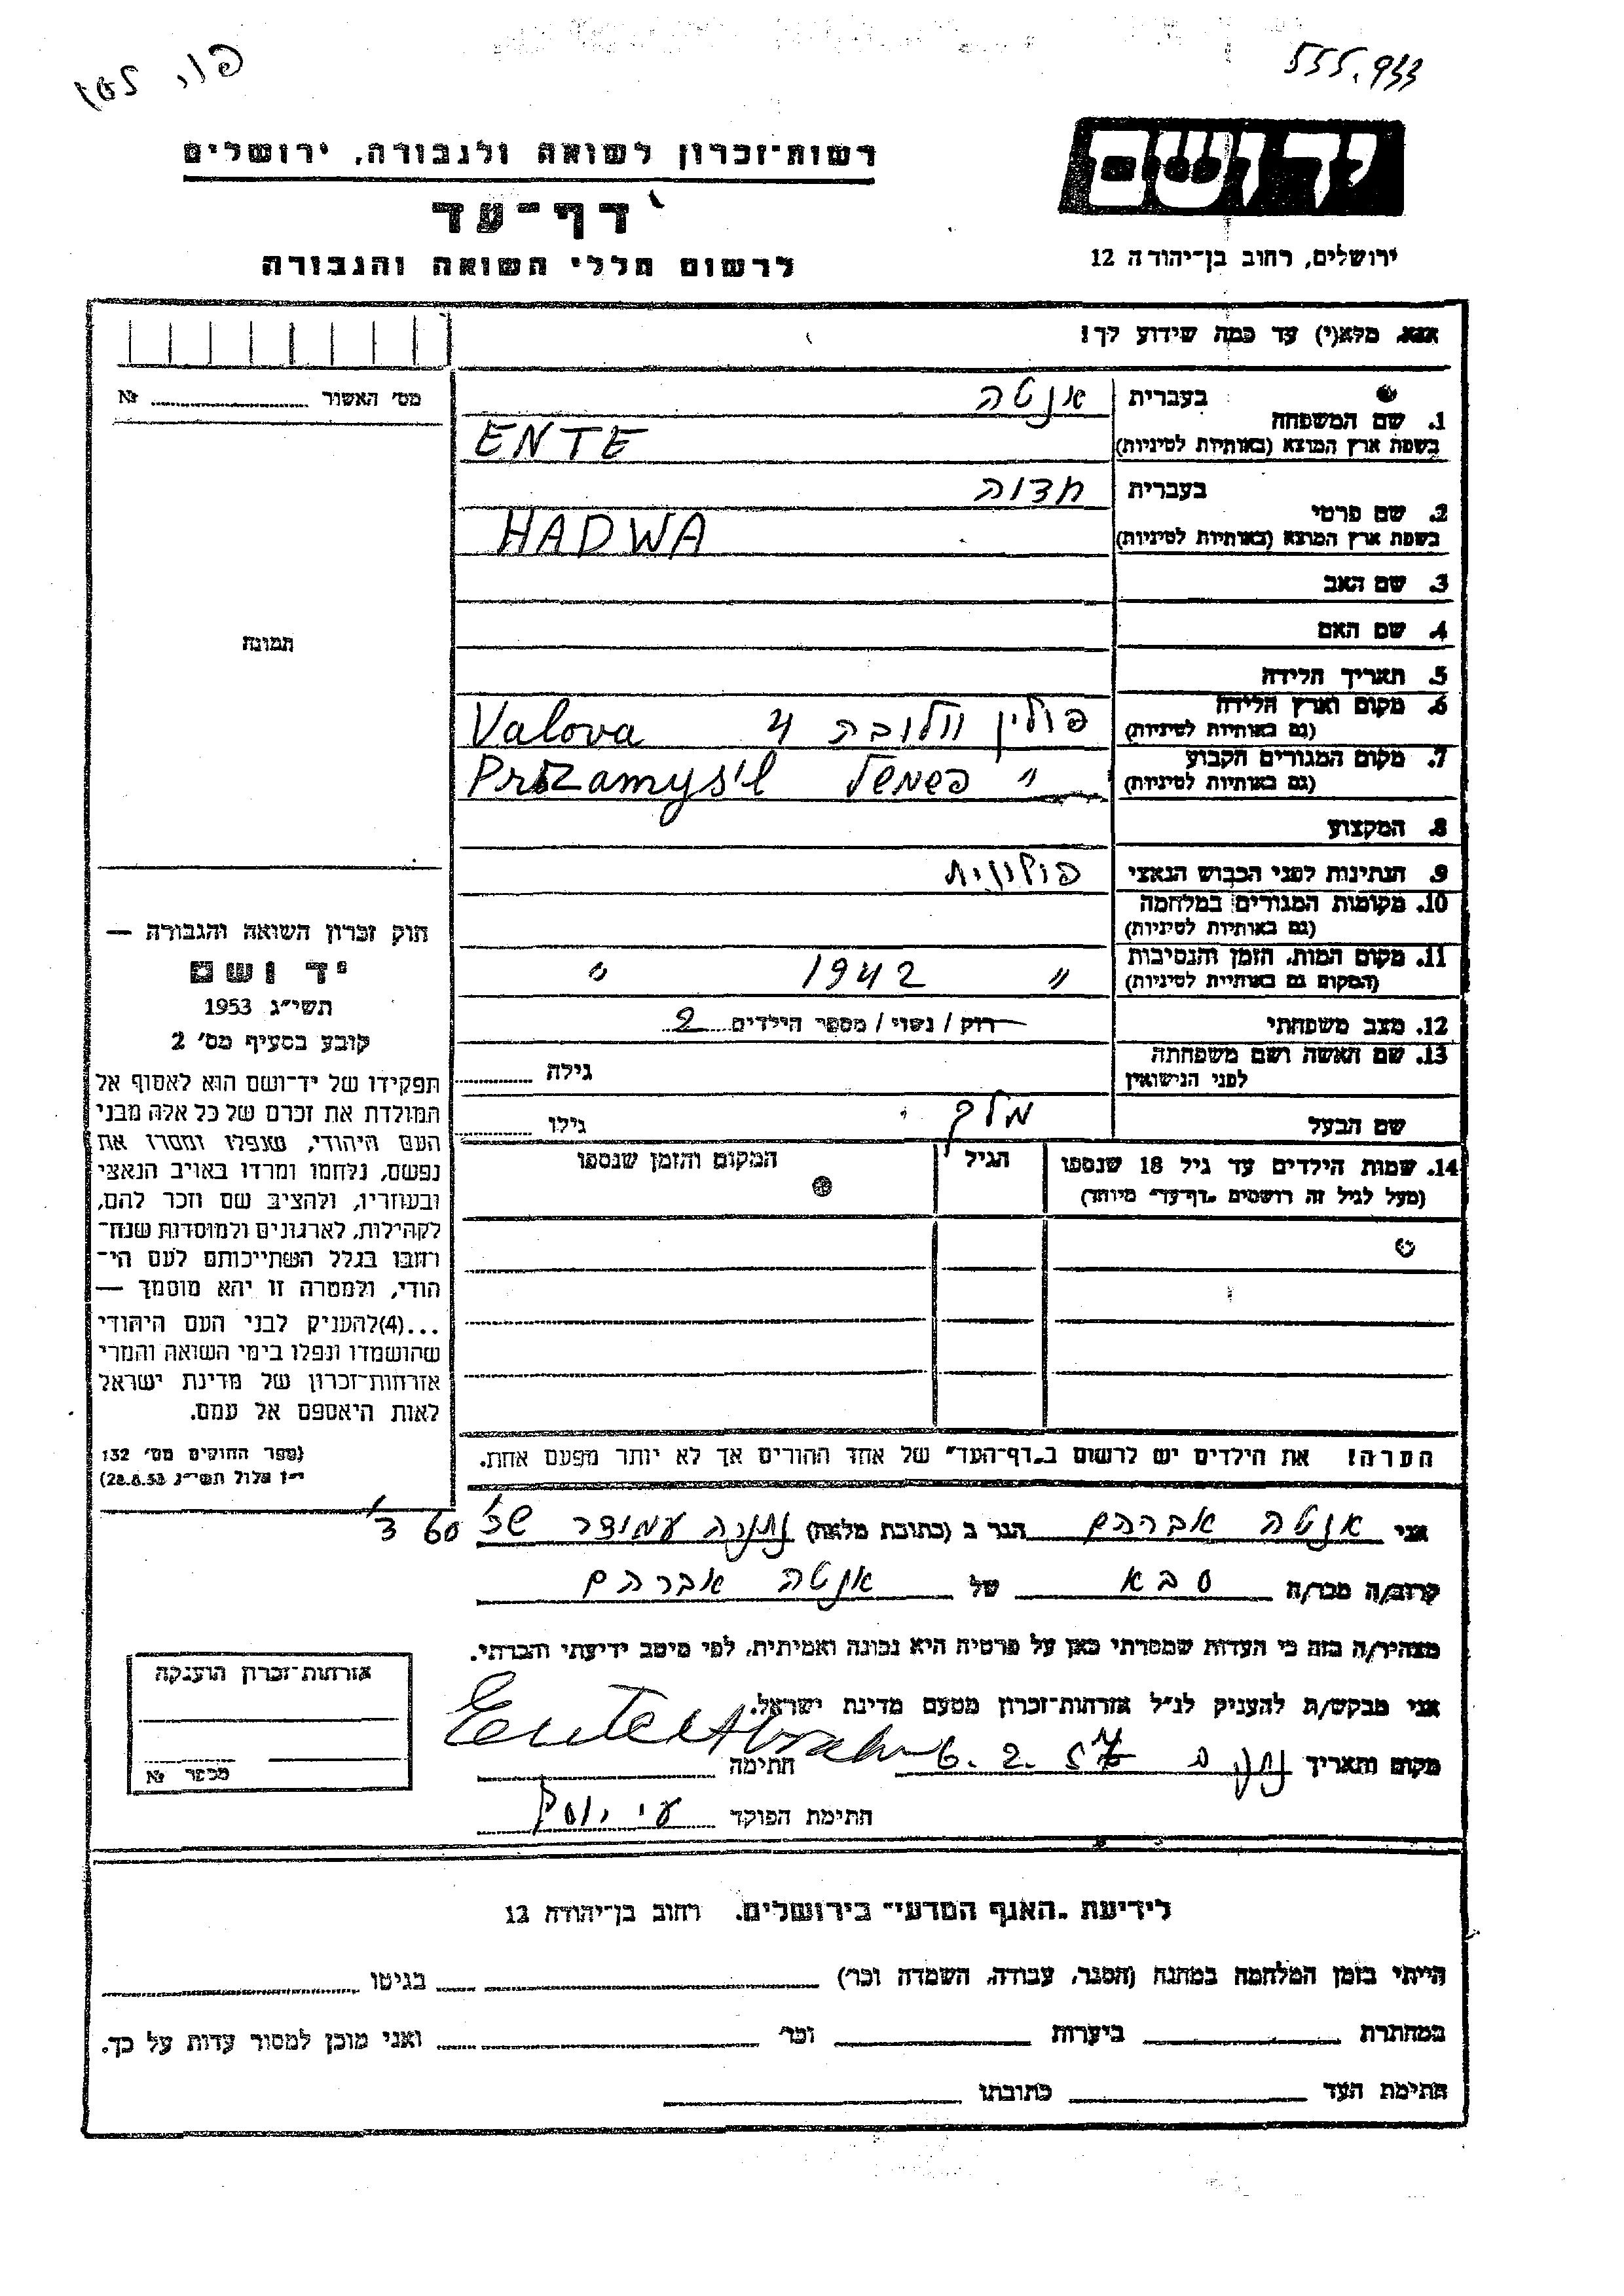 555.933
רשות־זכרון לשואה ולגבורה, ירושלים
דף־עד
לרשום חללי השואה והגבורה
ידושם
ירושלים, רחוב בן־יהודה 12
אנא, מלא(י) עד כמה שידוע לך!
מס׳ האשור № 
בעברית אנטה
1. שם המשפחה
בשפת ארץ המוצא (באותיות לטיניות) ENTE
בעברית חדוה
2. שם פרטי
בשפת ארץ המוצא (באותיות לטיניות) HADWA
3. שם האב
4. שם האם
תמונה
5. תאריך הלידה
6. מקום וארץ הלידה פולין וולובה Valova
(גם באותיות לטיניות)
7. מקום המגורים הקבוע " פשמשל Przamysil
(גם באותיות לטיניות)
8. המקצוע
9. הנתינות לפני הכבוש הנאצי פולונית
10. מקומות המגורים במלחמה
(גם באותיות לטיניות)
11. מקום המות, הזמן והנסיבות " 1942 "
(המקום גם באותיות לטיניות)
12. מצב משפחתי רוק / נשוי / מספר הילדים 2
13. שם האשה ושם משפחתה
לפני הנישואין גילה
שם הבעל מלך גילו
14. שמות הילדים עד גיל 18 שנספו הגיל המקום והזמן שנספו
(מעל לגיל זה רושמים „דף־עד" מיוחד)
הערה! את הילדים יש לרשום ב„דף־העד" של אחד ההורים אך לא יותר מפעם אחת.
חוק זכרון השואה והגבורה —
יד ושם
תשי״ג 1953
קובע בסעיף מס׳ 2
תפקידו של יד־ושם הוא לאסוף אל
המולדת את זכרם של כל אלה מבני
העם היהודי, שנפלו ומסרו את
נפשם, נלחמו ומרדו באויב הנאצי
ובעוזריו, ולהציב שם וזכר להם,
לקהילות, לארגונים ולמוסדות שנח־
רבו בגלל השתייכותם לעם הי־
הודי, ולמטרה זו יהא מוסמך —
...(4)להעניק לבני העם היהודי
שהושמדו ונפלו בימי השואה והמרי
אזרחות־זכרון של מדינת ישראל
לאות היאספם אל עמם.
(ספר החוקים מס׳ 132
י״ז אלול תשי״ג 28.8.53)
אני אנטה אברהם הגר ב (כתובת מלאה) נתניה עמידר שכ׳ 60 ד׳
קרוב/ה מכר/ה סבא של אנטה אברהם
מצהיר/ה בזה כי העדות שמסרתי כאן על פרטיה היא נכונה ואמיתית, לפי מיטב ידיעתי והכרתי.
אני מבקש/ת להעניק לנ״ל אזרחות־זכרון מטעם מדינת ישראל.
מקום ותאריך 6.2.57 חתימה Ente Abraham
חתימת הפוקד
אזרחות־זכרון הוענקה
מספר №
לידיעת „האגף המדעי" בירושלים. רחוב בן־יהודה 12
הייתי בזמן המלחמה במחנה (הסגר, עבודה, השמדה וכו׳) בגיטו
במחתרת ביערות וכו׳ ואני מוכן למסור עדות על כך.
חתימת העד כתובתו